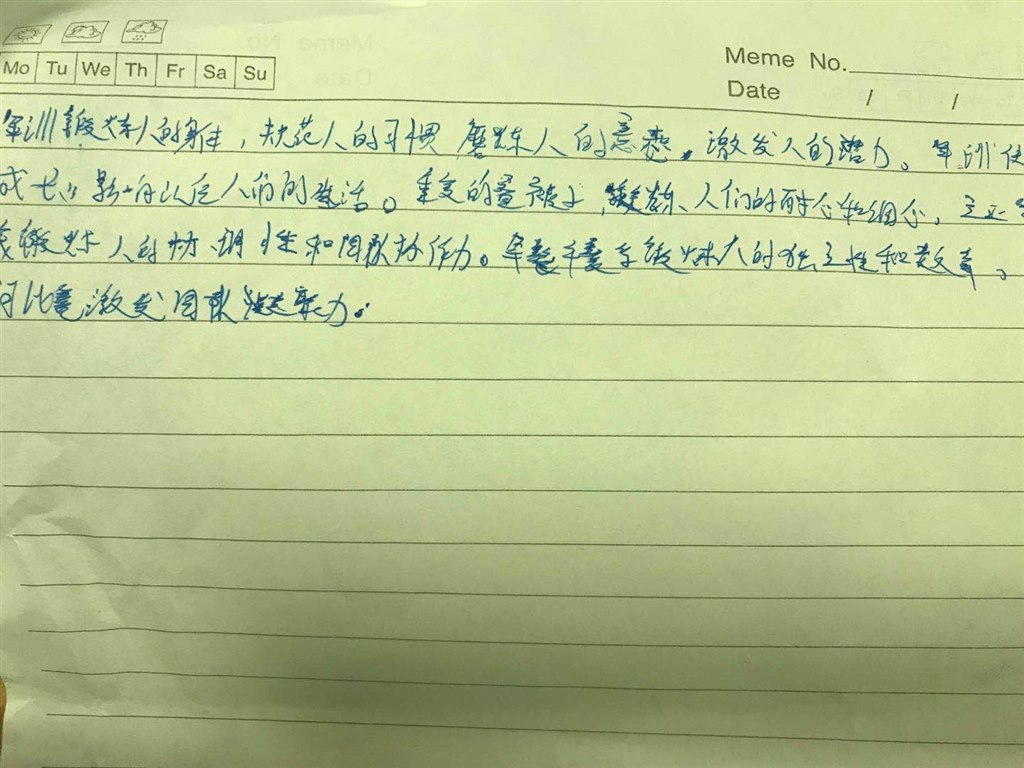 Mo Tu We Th Fr Sa Su
Meme No.
Date / /
军训锻炼人的身体，规范人的习惯 磨炼人的意志，激发人的潜力。军训
人们的生活。重复的叠被子，锻炼人们的耐心和细心，
锻炼人的协调性和团队协作力。军训锻炼人的独立性和
激发团队凝聚力.